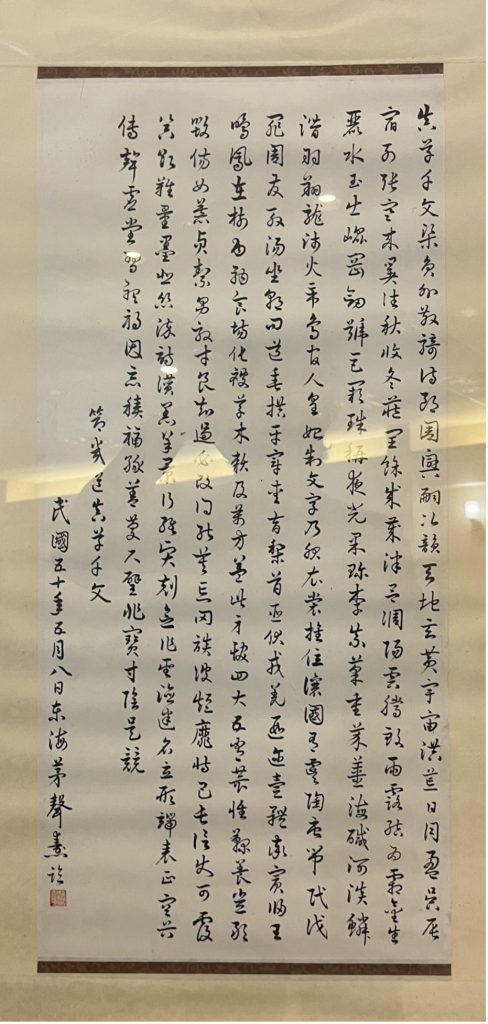 真草千文梁員外散騎侍郎周興嗣次韻天地玄黃宇宙洪荒日月盈昃辰
宿列張寒來暑往秋收冬藏閏餘成歲律呂調陽雲騰致雨露結為霜金生
麗水玉出崑岡劍號巨闕珠稱夜光果珍李柰菜重芥薑海鹹河淡鱗
潛羽翔龍師火帝鳥官人皇始制文字乃服衣裳推位讓國有虞陶唐弔民伐
罪周發殷湯坐朝問道垂拱平章愛育黎首臣伏戎羌遐邇壹體率賓歸王
鳴鳳在樹白駒食場化被草木賴及萬方蓋此身髮四大五常恭惟鞠養豈敢
毀傷女慕貞絜男效才良知過必改得能莫忘罔談彼短靡恃己長信使可覆
器欲難量墨悲絲染詩讚羔羊景行維賢剋念作聖德建名立形端表正空谷
傳聲虛堂習聽禍因惡積福緣善慶尺璧非寶寸陰是競
真草千文
民國五十年五月八日東海茅聲熹臨